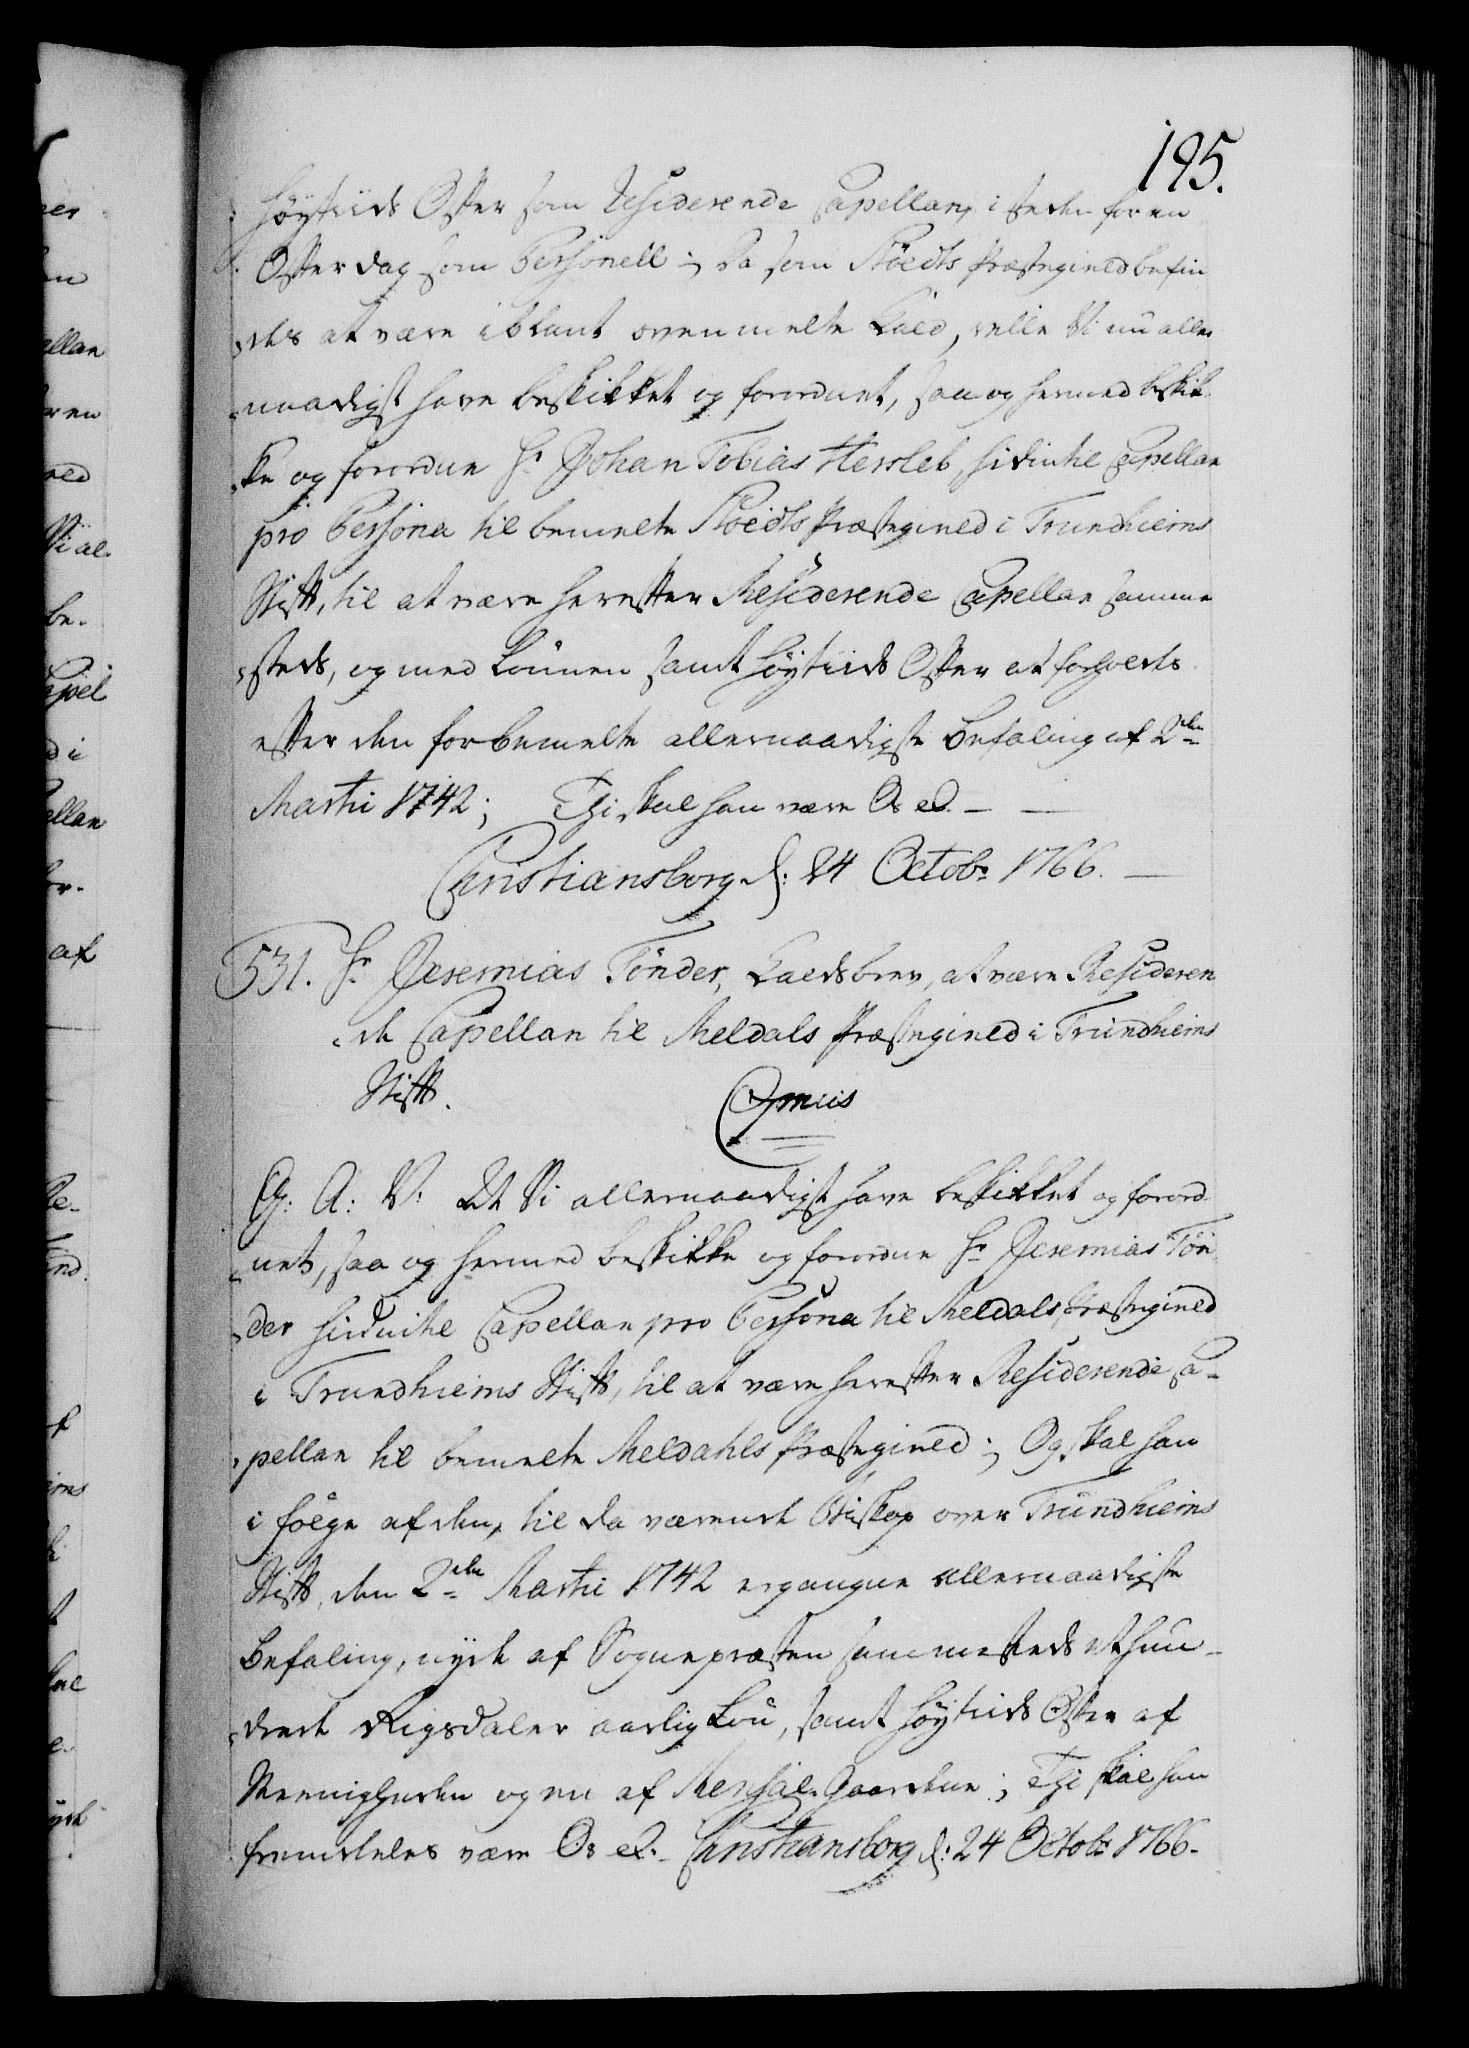 195.
Höytiids Offer som Residerende Capellan, i steden for en
Offerdag som Personell; Da som Stöeds Præstegield befin
des at være iblant ovenmelte Kald, ville Vi nu aller
naadigst have beskikket og forordnet, saa og hermed beskik
ke og forordne Hr Johan Tobias Hersleb, hidintil Capellan
pro Persona til bemelte Stöeds Præstegield i Trundhiems
Stift, til at være herefter Residerende Capellan samme
steds, og med Lönnen samt Höytiids Offer at forholdes
efter den forbemelte allernaadigste Befaling af 2den
Martii 1742; Thi skal han være Os ed. — —
Christiansborg d: 24 Octobr 1766. —
531. Hr Jeremias Tönder, Kaldsbrev, at være Resideren
de Capellan til Meldals Præstegield i Trundhiems
Stift.
Omnis
G: A: V: At Vi allernaadigst have beskikket og forord
net, saa og hermed beskikke og forordne Hr Jeremias Tön
der hidintil Capellan pro Persona til Meldals Præstegield
i Trundhiems Stift, til at være herefter Residerende Ca-
pellan til bemelte Meldahls Præstegield; Og skal han
i fölge af den, til da værende Biskop over Trundhiems
Stift, den 2den Martii 1742 ergangne allernaadigste
Befaling, nyde af Sognepræsten sammesteds et hun-
drede Rigsdaler aarlig Lön, samt Höytiids Offer af
Meenigheden og en af Mensal Gaardene; Thi skal han
fremdeles være Os ed. Christiansborg d: 24 Octobr 1766.